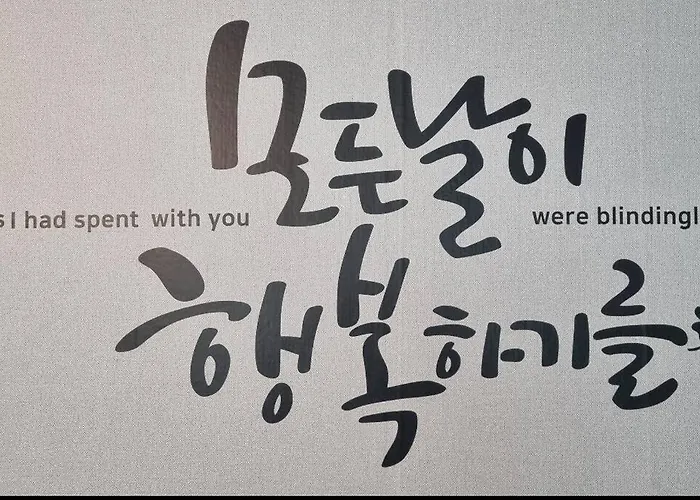 모든날이
I had spent with you
were
행복하기를